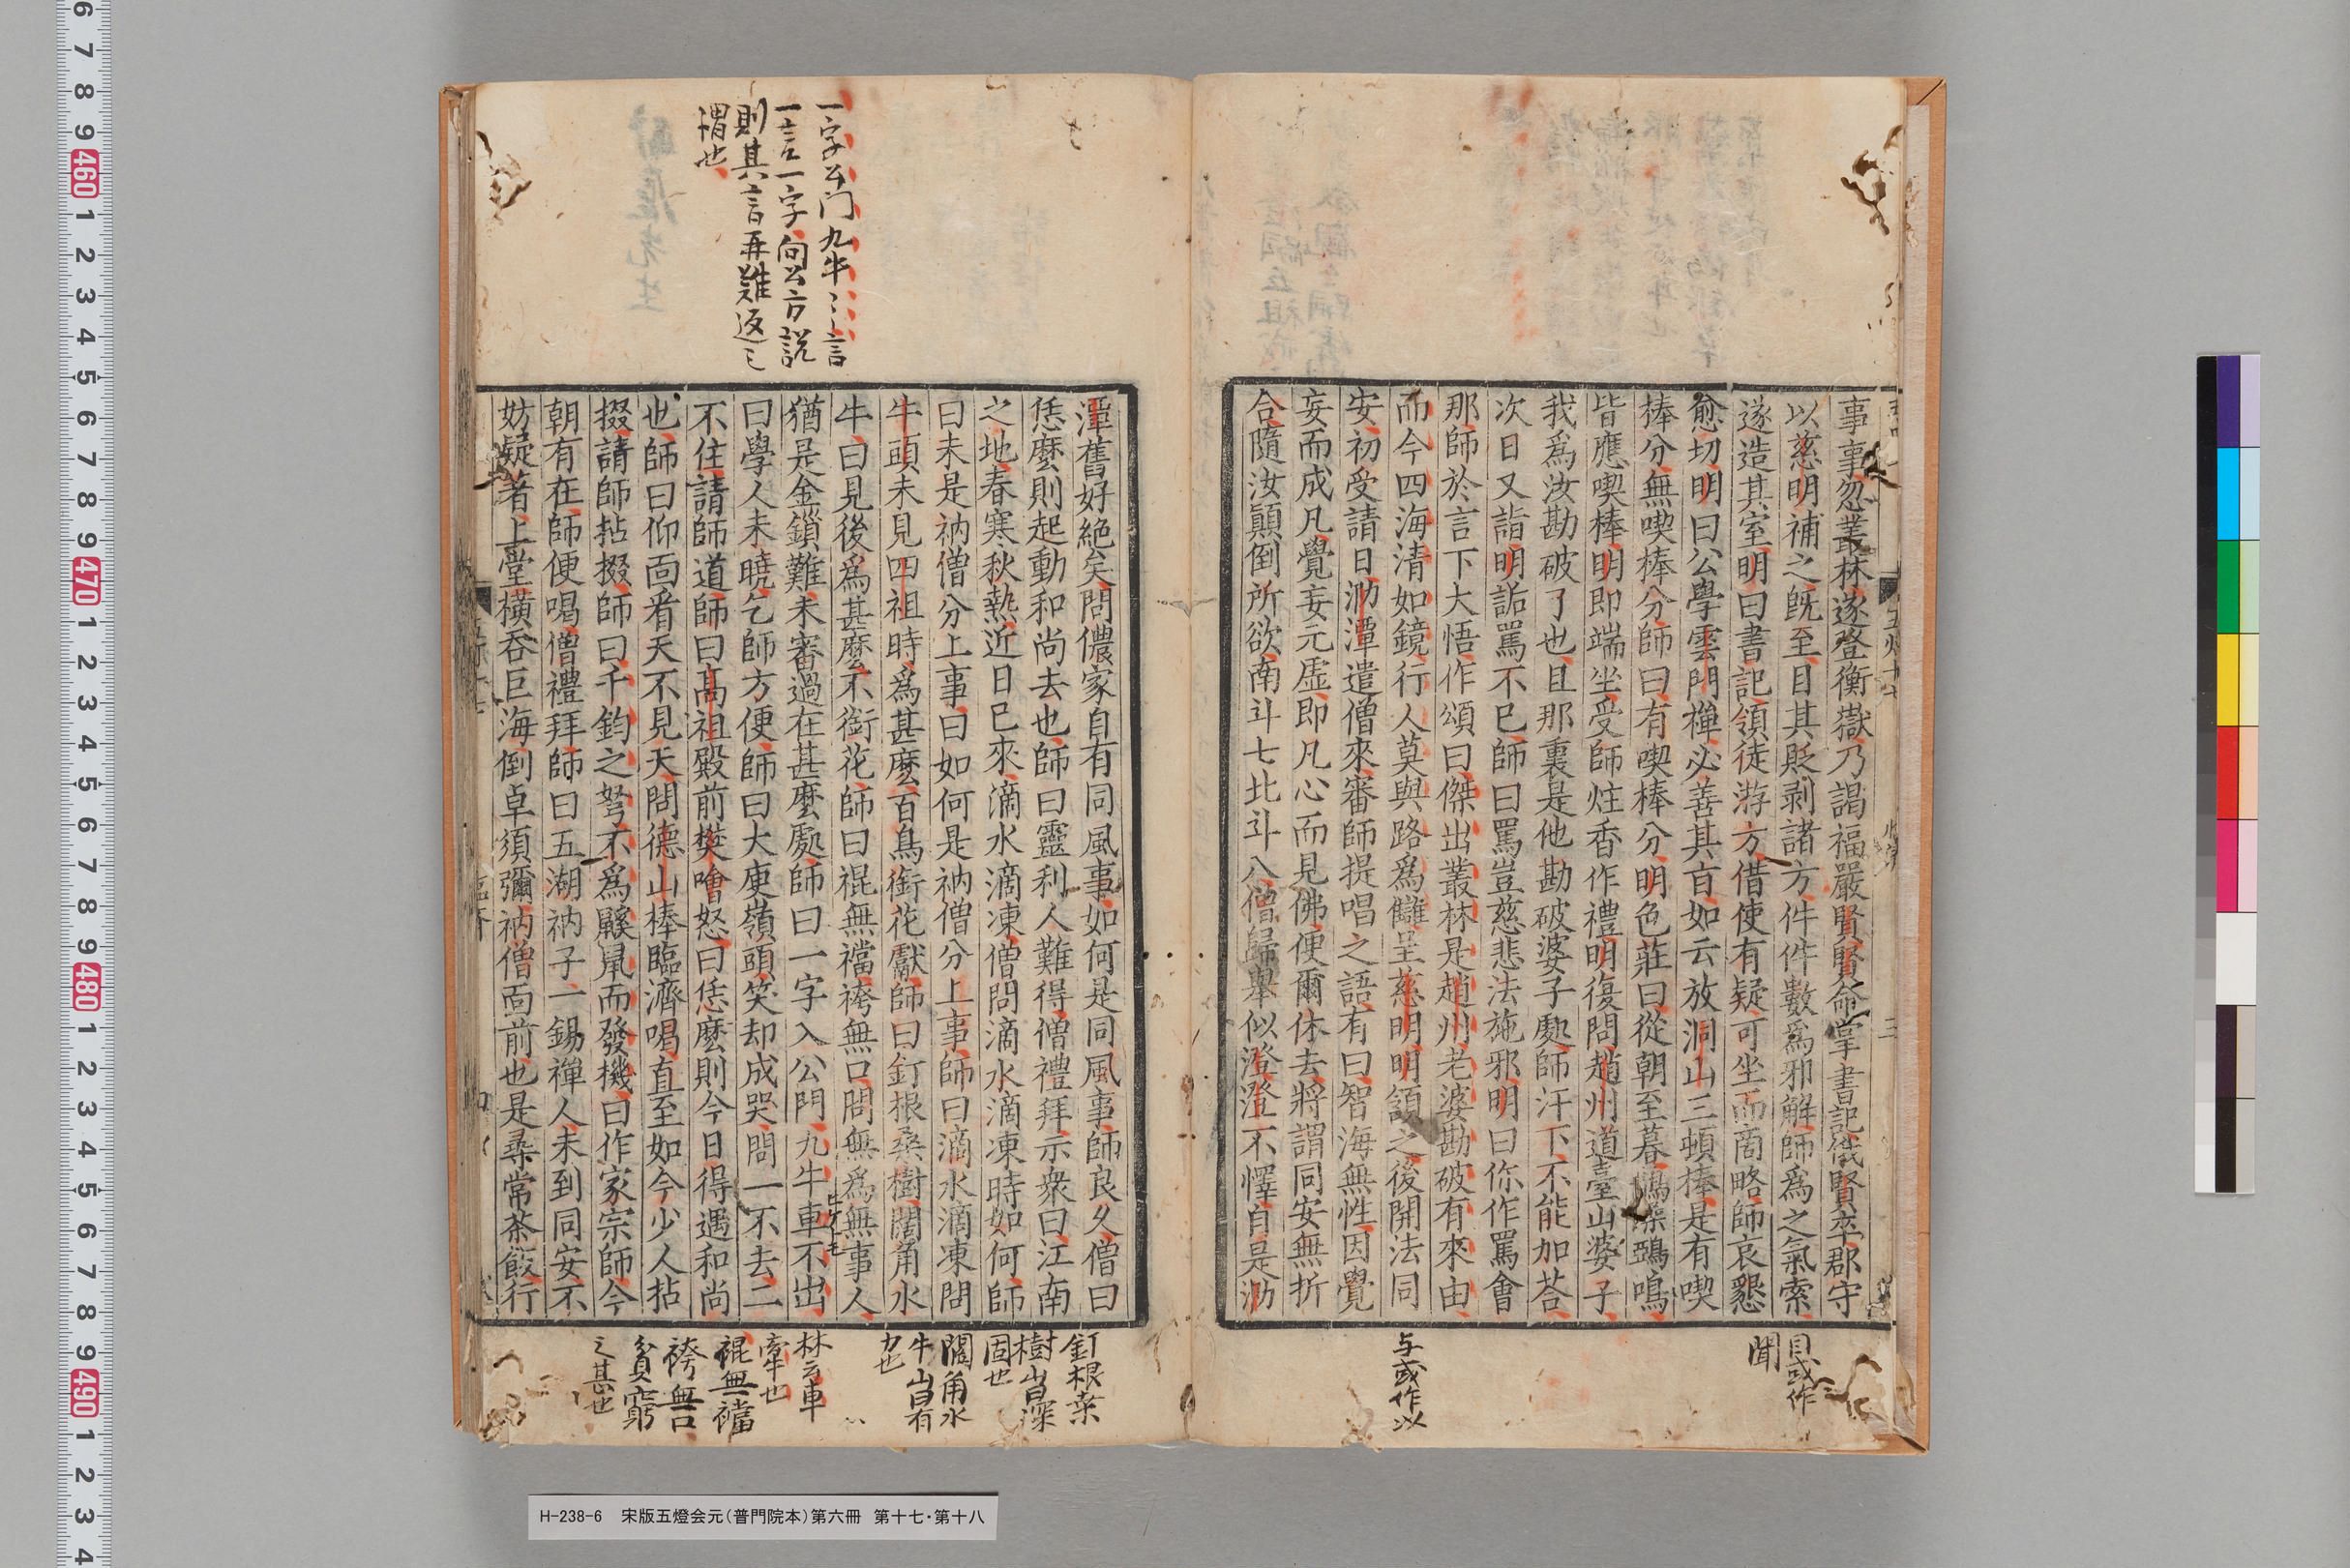 事事忽叢林遂登衡嶽乃謁福嚴賢賢命掌書記俄賢卒郡守
以慈明補之旣至目其貶剥諸方件件數爲邪解師爲之氣索
遂造其室明曰書記領徒游方借使有疑可坐而商略師哀懇
愈切明曰公學雲門禪必善其旨如云放洞山三頓棒是有喫
棒分無喫棒分師曰有喫棒分明色莊曰從朝至暮鵲噪鵶鳴
皆應喫棒明即端坐受師炷香作禮明復問趙州道臺山婆子
我爲汝勘破了也且那裏是他勘破婆子處師汗下不能加荅
次日又詣明詬罵不已師曰罵豈慈悲法施邪明曰你作罵會
那師於言下大悟作頌曰傑出叢林是趙州老婆勘破有來由
而今四海清如鏡行人莫與路爲讎呈慈明明頷之後開法同
安初受請日泐潭遣僧來審師提唱之語有曰智海無性因覺
妄而成凡覺妄元虛即凡心而見佛便爾休去將謂同安無折
合隨汝顚倒所欲南斗七北斗八僧歸舉似澄澄不懌自是泐
目或作
聞
与或作以
潭舊好絶矣問儂家自有同風事如何是同風事師良久僧曰
恁麼則起動和尚去也師曰靈利人難得僧禮拜示衆曰江南
之地春寒秋熱近日已來滴水滴凍僧問滴水滴凍時如何師
曰未是衲僧分上事曰如何是衲僧分上事師曰滴水滴凍問
牛頭未見四祖時爲甚麼百鳥銜花獻師曰釘根桑樹闊角水
牛曰見後爲甚麼不銜花師曰裩無襠袴無口問無爲無事人
猶是金鎖難未審過在甚麼處師曰一字入公門九牛車不出
曰學人未曉乞師方便師曰大庾嶺頭笑却成哭問一不去二
不住請師道師曰高祖殿前樊噲怒曰恁麼則今日得遇和尚
也師曰仰面看天不見天問德山棒臨濟喝直至如今少人拈
掇請師拈掇師曰千鈞之弩不爲鼷鼠而發機曰作家宗師今
朝有在師便喝僧禮拜師曰五湖衲子一錫禪人未到同安不
妨疑著上堂橫吞巨海倒卓須彌衲僧面前也是尋常茶飯行
一字公门九牛〻〻言
一言一字向公方説
則其言再難返之
謂也
釘根桒
樹皆深
固也
闊角水
牛皆有
力也
林云車
牽也
裩無襠
袴無口
貧窮
之甚也
H-238-6 宋版五燈会元（普門院本）第六冊 第十七・第十八
6
7
8
9
460
1
2
3
4
5
6
7
8
9
470
1
2
3
4
5
6
7
8
9
480
1
2
3
4
5
6
7
8
9
490
1
2
3
4